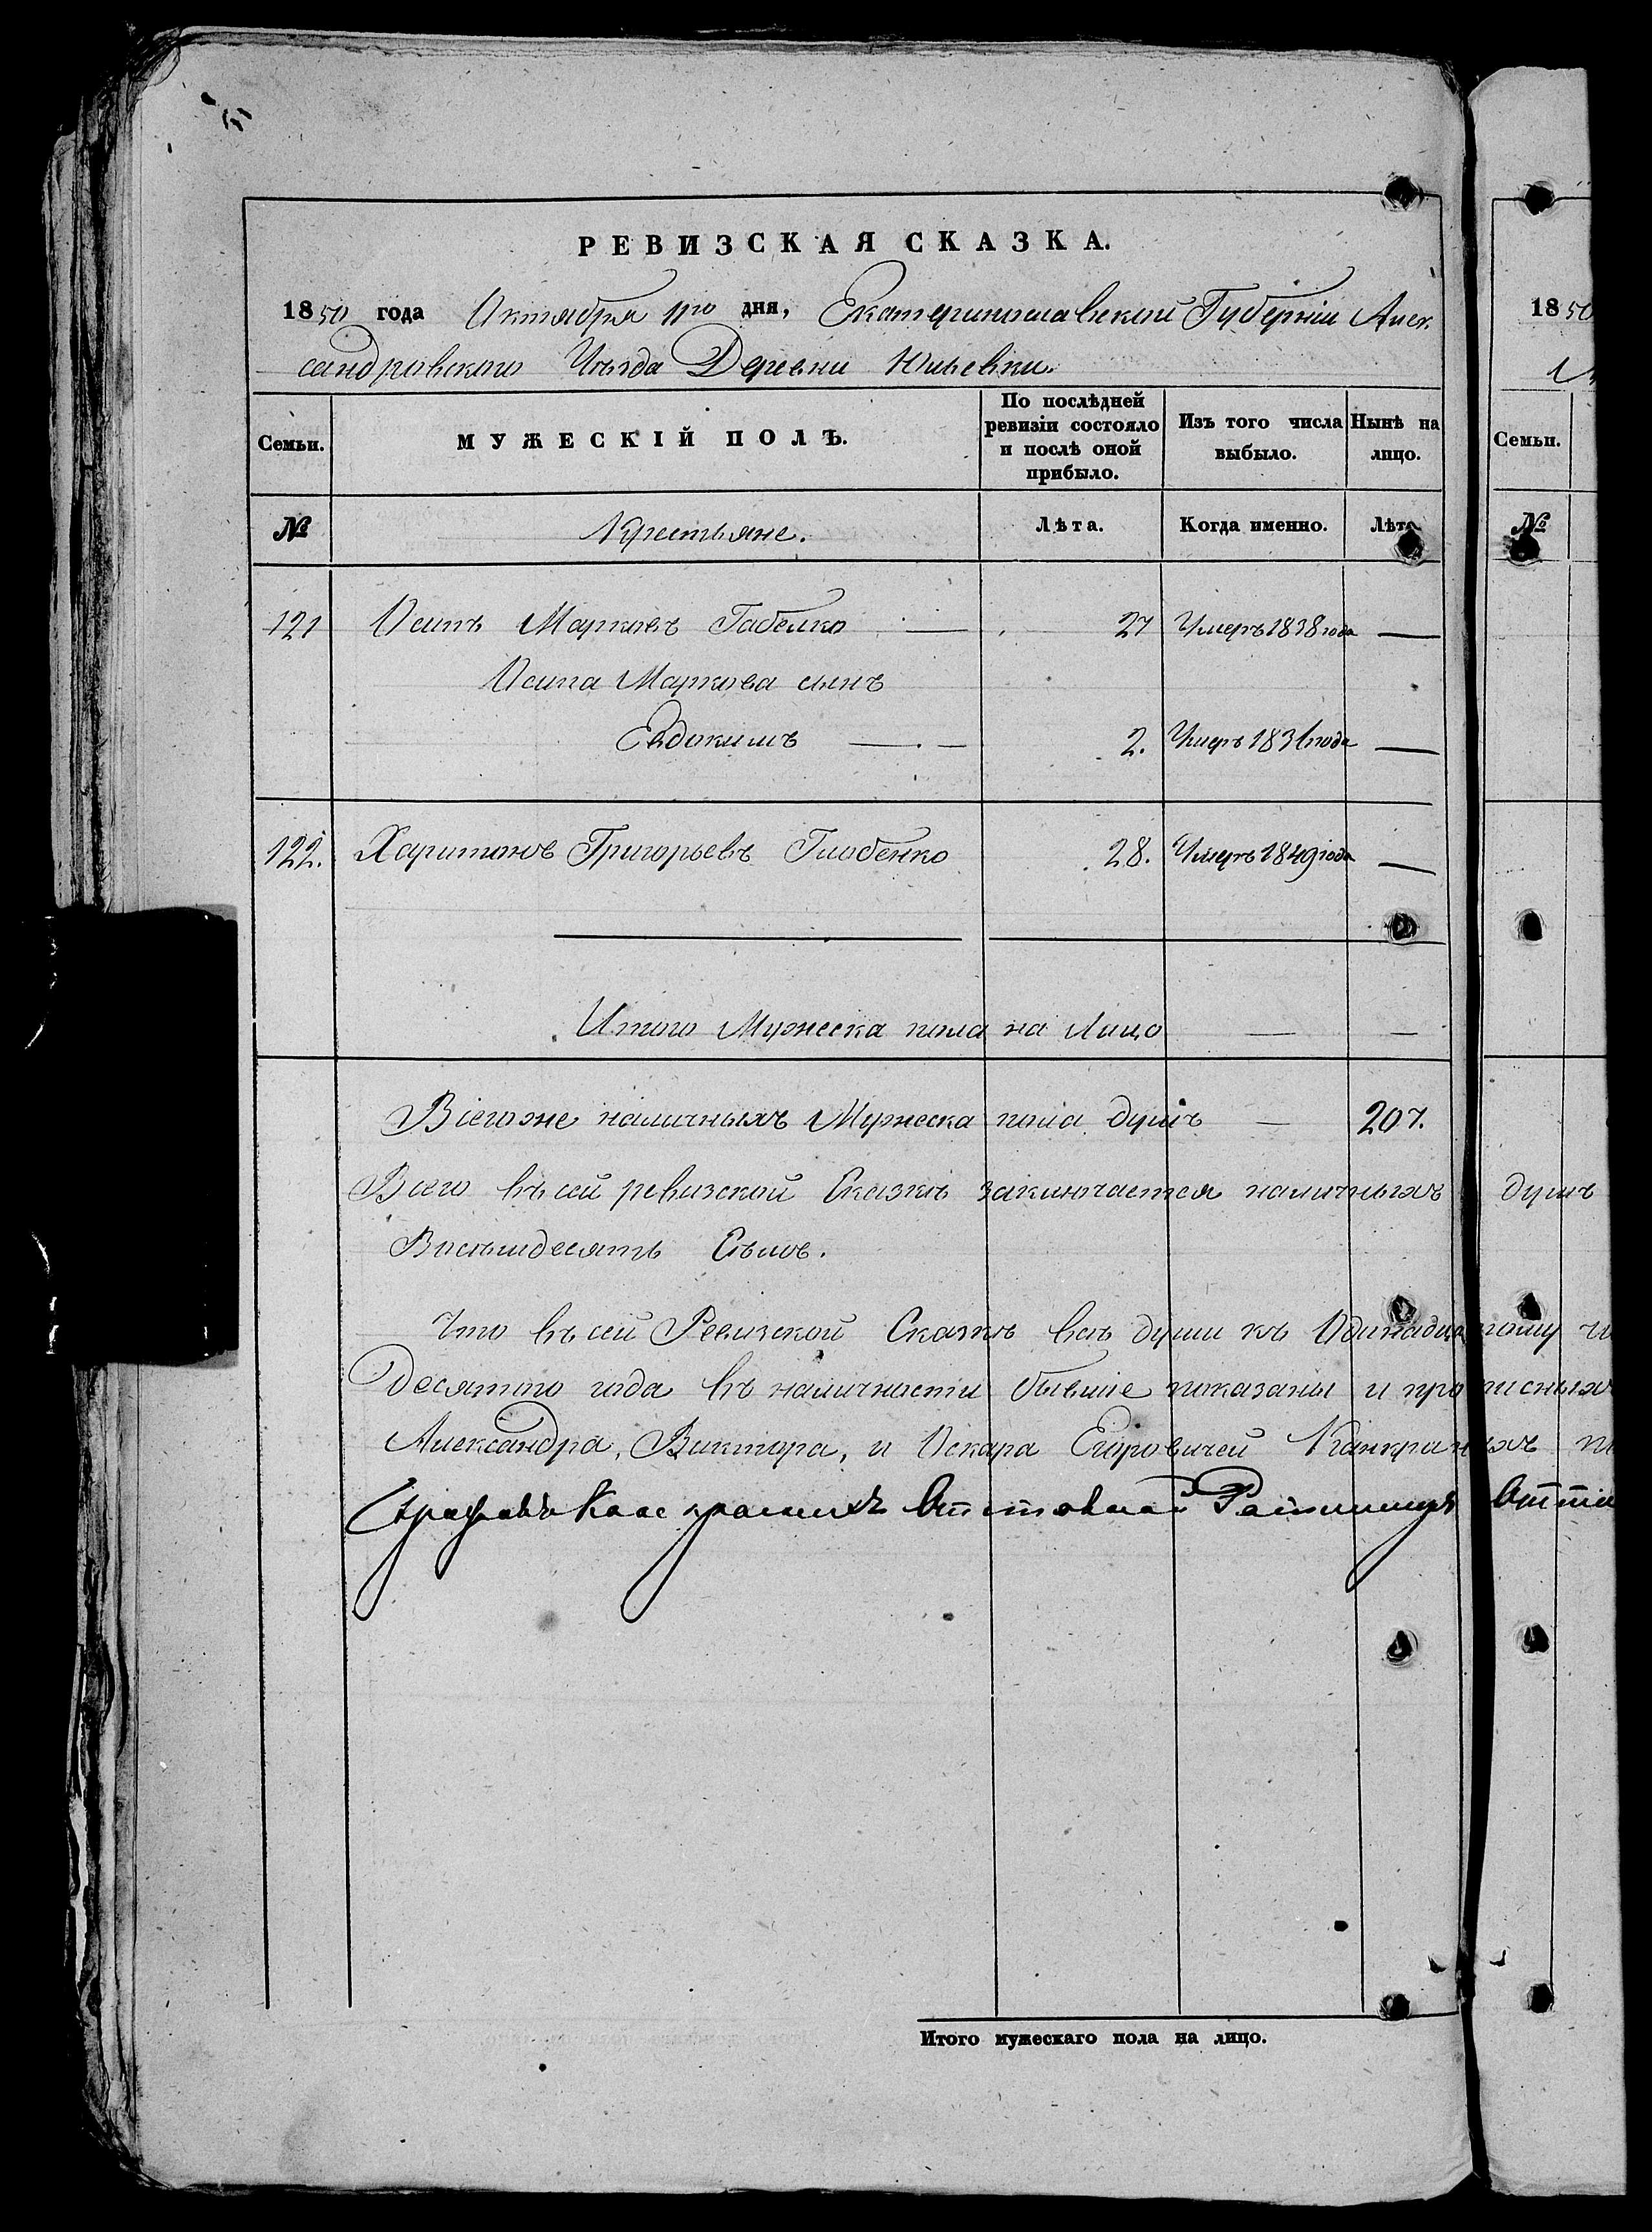 РЕВИЗСКАЯ СКАЗКА.
1850 года Октября 11го дня, Екатеринославской Губерніи Алек
сандровского Уѣзда Деревни Юльевки.
Семьи.
МУЖЕСКІЙ ПОЛЪ.
По послѣдней ревизіи состояло и послѣ оной прибыло.
Изъ того числа выбыло.
Нынѣ на лицо.
№ Крестьяне. Лѣта. Когда именно. Лѣта.
121 Осипъ Марковъ Габелко 27 Умеръ 1838 года —
Осипа Маркова сынъ
Евдокимъ — 2. Умеръ 1836 года —
122. Харитонъ Григорьевъ Глобенко 28. Умеръ 1849 года —
Итого Мужеска пола на Лицо — —
Всегоже наличныхъ Мужеска пола душъ — 207.
Всего въ сей ревизской Сказкѣ заключается наличныхъ душъ
Восемьдесятъ Семь.
Что въ сей Ревизской Сказкѣ всѣ души къ Одинадцатому
Десятого года въ наличности бывшіе показаны и прописныхъ
Александра, Виктора, и Оскара Егоровичей Канкриныхъ
Графовъ Канкриныхъ Отставной
1850
Семьи.
№